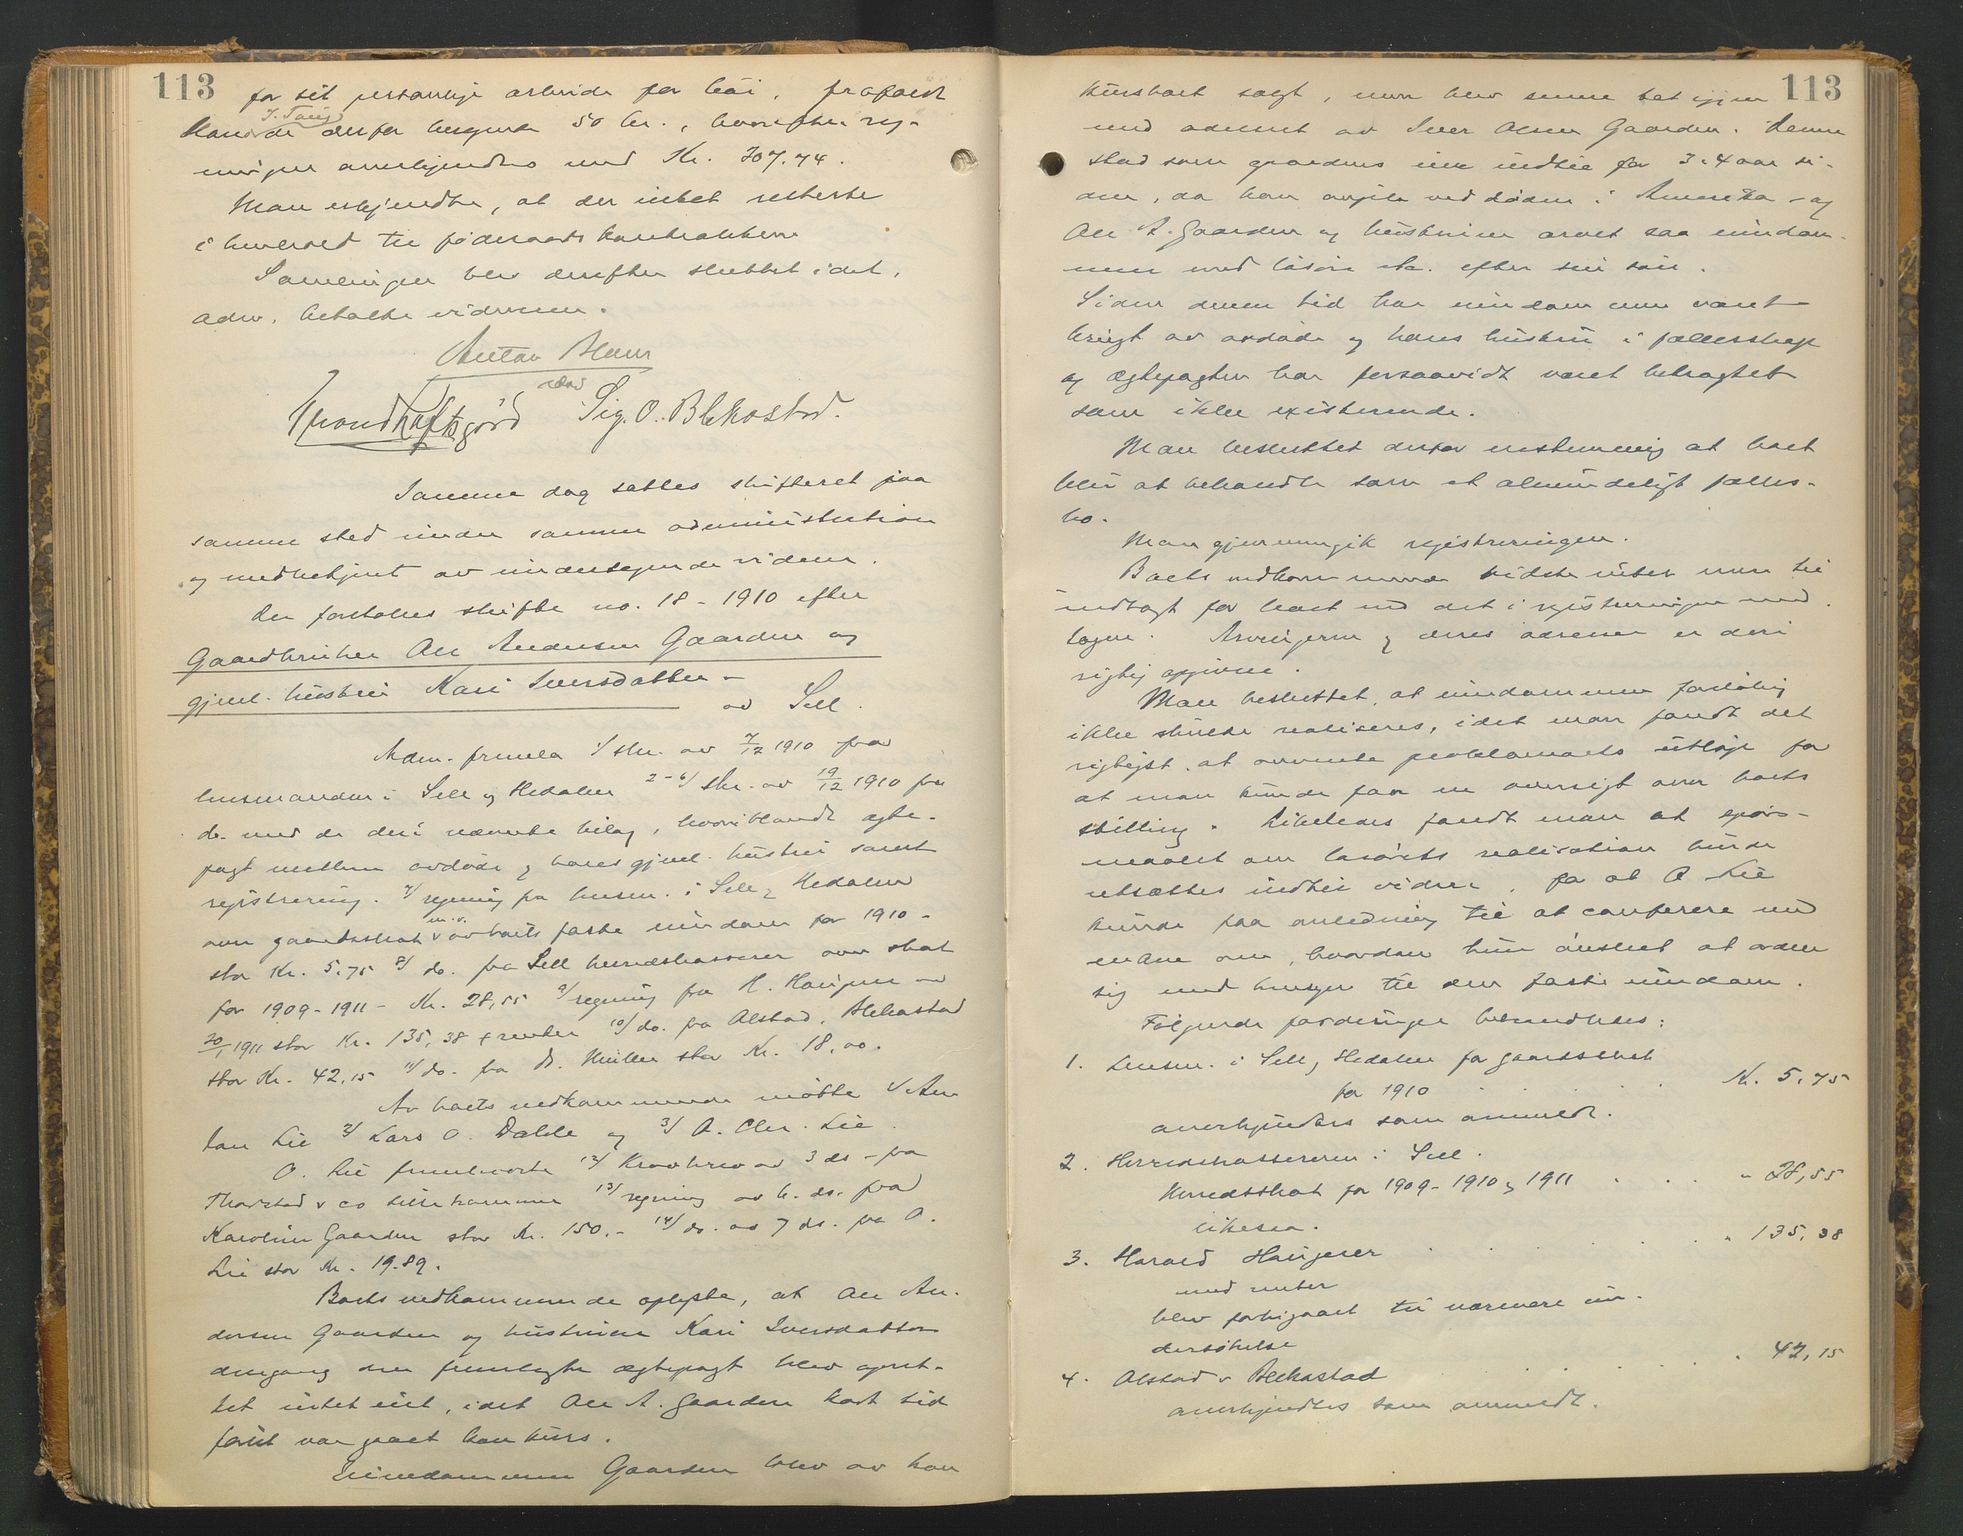 113
for sit personlige arbeide for boi,
J. Tang
derfor beregnede 50 kr., hvorefter reg-
ningen anerkjendtes med Kr. 307.74.
Man erkjendte, at der intet resterte
i henhold til føderaadskontrakten
Samlingen blev derefter sluttet idet
adm. betalte vidnene.
Sig. O. Blekastad.
Samme dag sattes skifteret paa
samme sted under samme administration
og medbetjent av undertegnede vidner.
Der foretokes skifte no. 18 - 1910 efter
Gaardbruker Ole Andersen Gaarden og
gjenl. hustru Kari Iversdatter -
av Sell.
Adm. fremla 1/ skr. av 7/12 1910 fra
lensmanden i Sell og Hedalen 2-6/ skr. av 19/12 1910 fra
do. med de deri nævnte bilag, hvoriblandt egte-
pagt mellem avdøde og hans gjenl. hustru samt
registrering. 7/ regning fra lensm. i Sell & Hedalen
m.v.
over gaardsskat av boets faste eiendom for 1910 -
stor Kr. 5,75 8/ do. fra Sell herredskasserer over skat
for 1909 - 1911 - Kr. 28,55 9/ regning fra H. Haugerer av
20/1 1911 stor Kr. 135,38 + renter 10/ do. fra Olstad & Blekastad
stor Kr. 42,15 11/ do. fra stor Kr. 18,00.
Av boets vedkommende møtte 1/ An
ton Lie 2/ Lars O. Dahle og 3/ O. Chr. Lie.
O. Lie fremleverte 12/ kravbrev av 3 ds - fra
Thorstad & co Lillehammer 13/ regning av 6. ds. fra
Karoline Gaarden stor Kr. 150.- 14/ do. av 7 ds. fra O.
Lie stor Kr. 19.89.
Boets vedkommende oplyste, at Ole An-
dersen Gaarden og hustruen Kari Iversdatter
dengang den fremlagte egtepagt blev opret-
tet intet eiet, idet Ole A. Gaarden kort tid
forut var gaaet konkurs.
Eiendommen Gaarden blev av kon
113
kursboet solgt, men blev senere tat igjen
med odelsret av Iver Olsen Gaarden. Denne
stod som gaardens eier indtil for 3 a 4 aar si-
den, da han avgik ved døden i Amerika - og
Ole A. Gaarden og hustruen arvet saa eiendom-
men med løsøre etc. efter sin søn.
Siden denne tid har eiendommen været
brugt av avdøde og hans hustru i fællesskap
og ægtepagten har forsaavidt været betragtet
som ikke existerende.
Man besluttet derfor enstemmig at boet
blir at behandle som et almindeligt fælles-
bo.
Man gjennemgik registreringen.
Boets vedkommende vidste intet mere til
indtægt for boet end det i registreringen med
tagne. Arvingerne og deres adresser er deri
rigtig opgivne.
Man besluttet, at eiendommen foreløbig
ikke skulde realiseres, idet man fandt det
rigtigst, at avvente proklamaets utløp for
at man kunde faa en oversigt over boets
stilling. Likeledes fandt man at spørs-
maalet om løsørets realisation burde
utsættes indtil videre, for at O. Lie
kunde faa anledning til at conferere med
enken om, hvordan hun ønsket at ordne
sig med hensyn til den faste eiendom.
Følgende fordringer behandledes:
1. Lensm. i Sell & Hedalen for gaardsskat
for 1910 . . . Kr. 5,75
anerkjendtes som anmeldt.
2. Herredskassereren i Sell.
Herredsskat for 1909 - 1910 & 1911 . . . " 28,55
likesaa.
3. Harald Haugerer . . . . . . " 135,38
med renter
blev forbigaaet til nærmere un-
dersøkelse
4. Olstad & Blekastad . . . . . " 42,15
anerkjendtes som anmeldt.